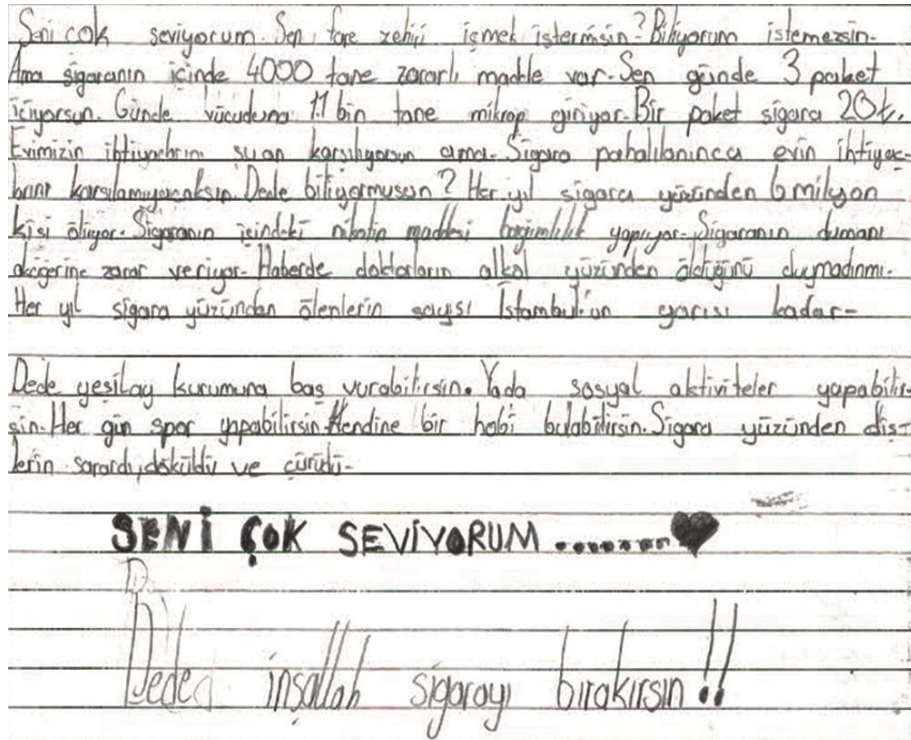 Seni cok seviyorum. Sen, fare zehiri içmek istermisin? Biliyorum istemezsin.
Ama sigaranın içinde 4000 tane zararlı madde var. Sen günde 3 paket
içiyorsun. Günde vücuduna 11 bin tane mikrop giriyor. Bir paket sigara 20₺.
Evimizin ihtiyaclarını şuan karşılıyorsun ama. Sigara pahalılanınca evin ihtiyac-
larını karşılamıyacaksın. Dede biliyormusun? Her yıl sigara yüzünden 6 milyon
kişi ölüyor. Sigaranın içindeki nikotin maddesi bağımlılık yapıyor. Sigaranın dumanı
akciğerine zarar veriyor. Haberde doktorların alkol yüzünden öldüğünü duymadınmı.
Her yıl sigara yüzünden ölenlerin sayısı İstambul'un yarısı kadar.
Dede yeşilay kurumuna baş vurabilirsin. Yada sosyal aktiviteler yapabilir-
sin. Her gün spor yapabilirsin. Kendine bir hobi bulabilirsin. Sigara yüzünden diş-
lerin sarardı, döküldü ve çürüdü.
SENİ ÇOK SEVİYORUM ........♥
Dede inşallah sigarayı bırakırsın!!